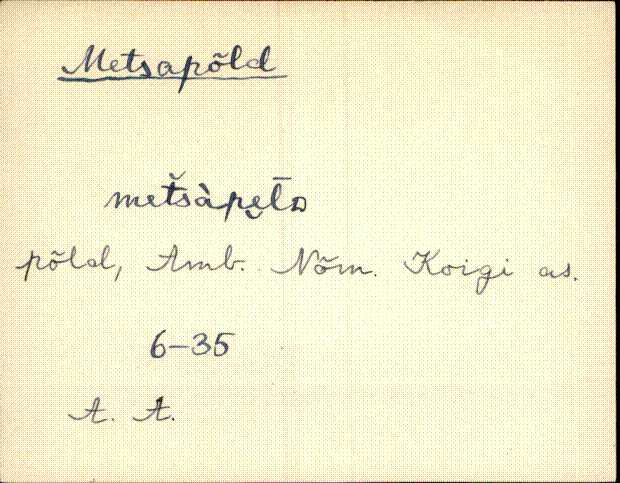 Metsapõld
metšàpe̮l̄ᴅ
põld, Amb. Nõm. Koigi as.
6–35
A. A.